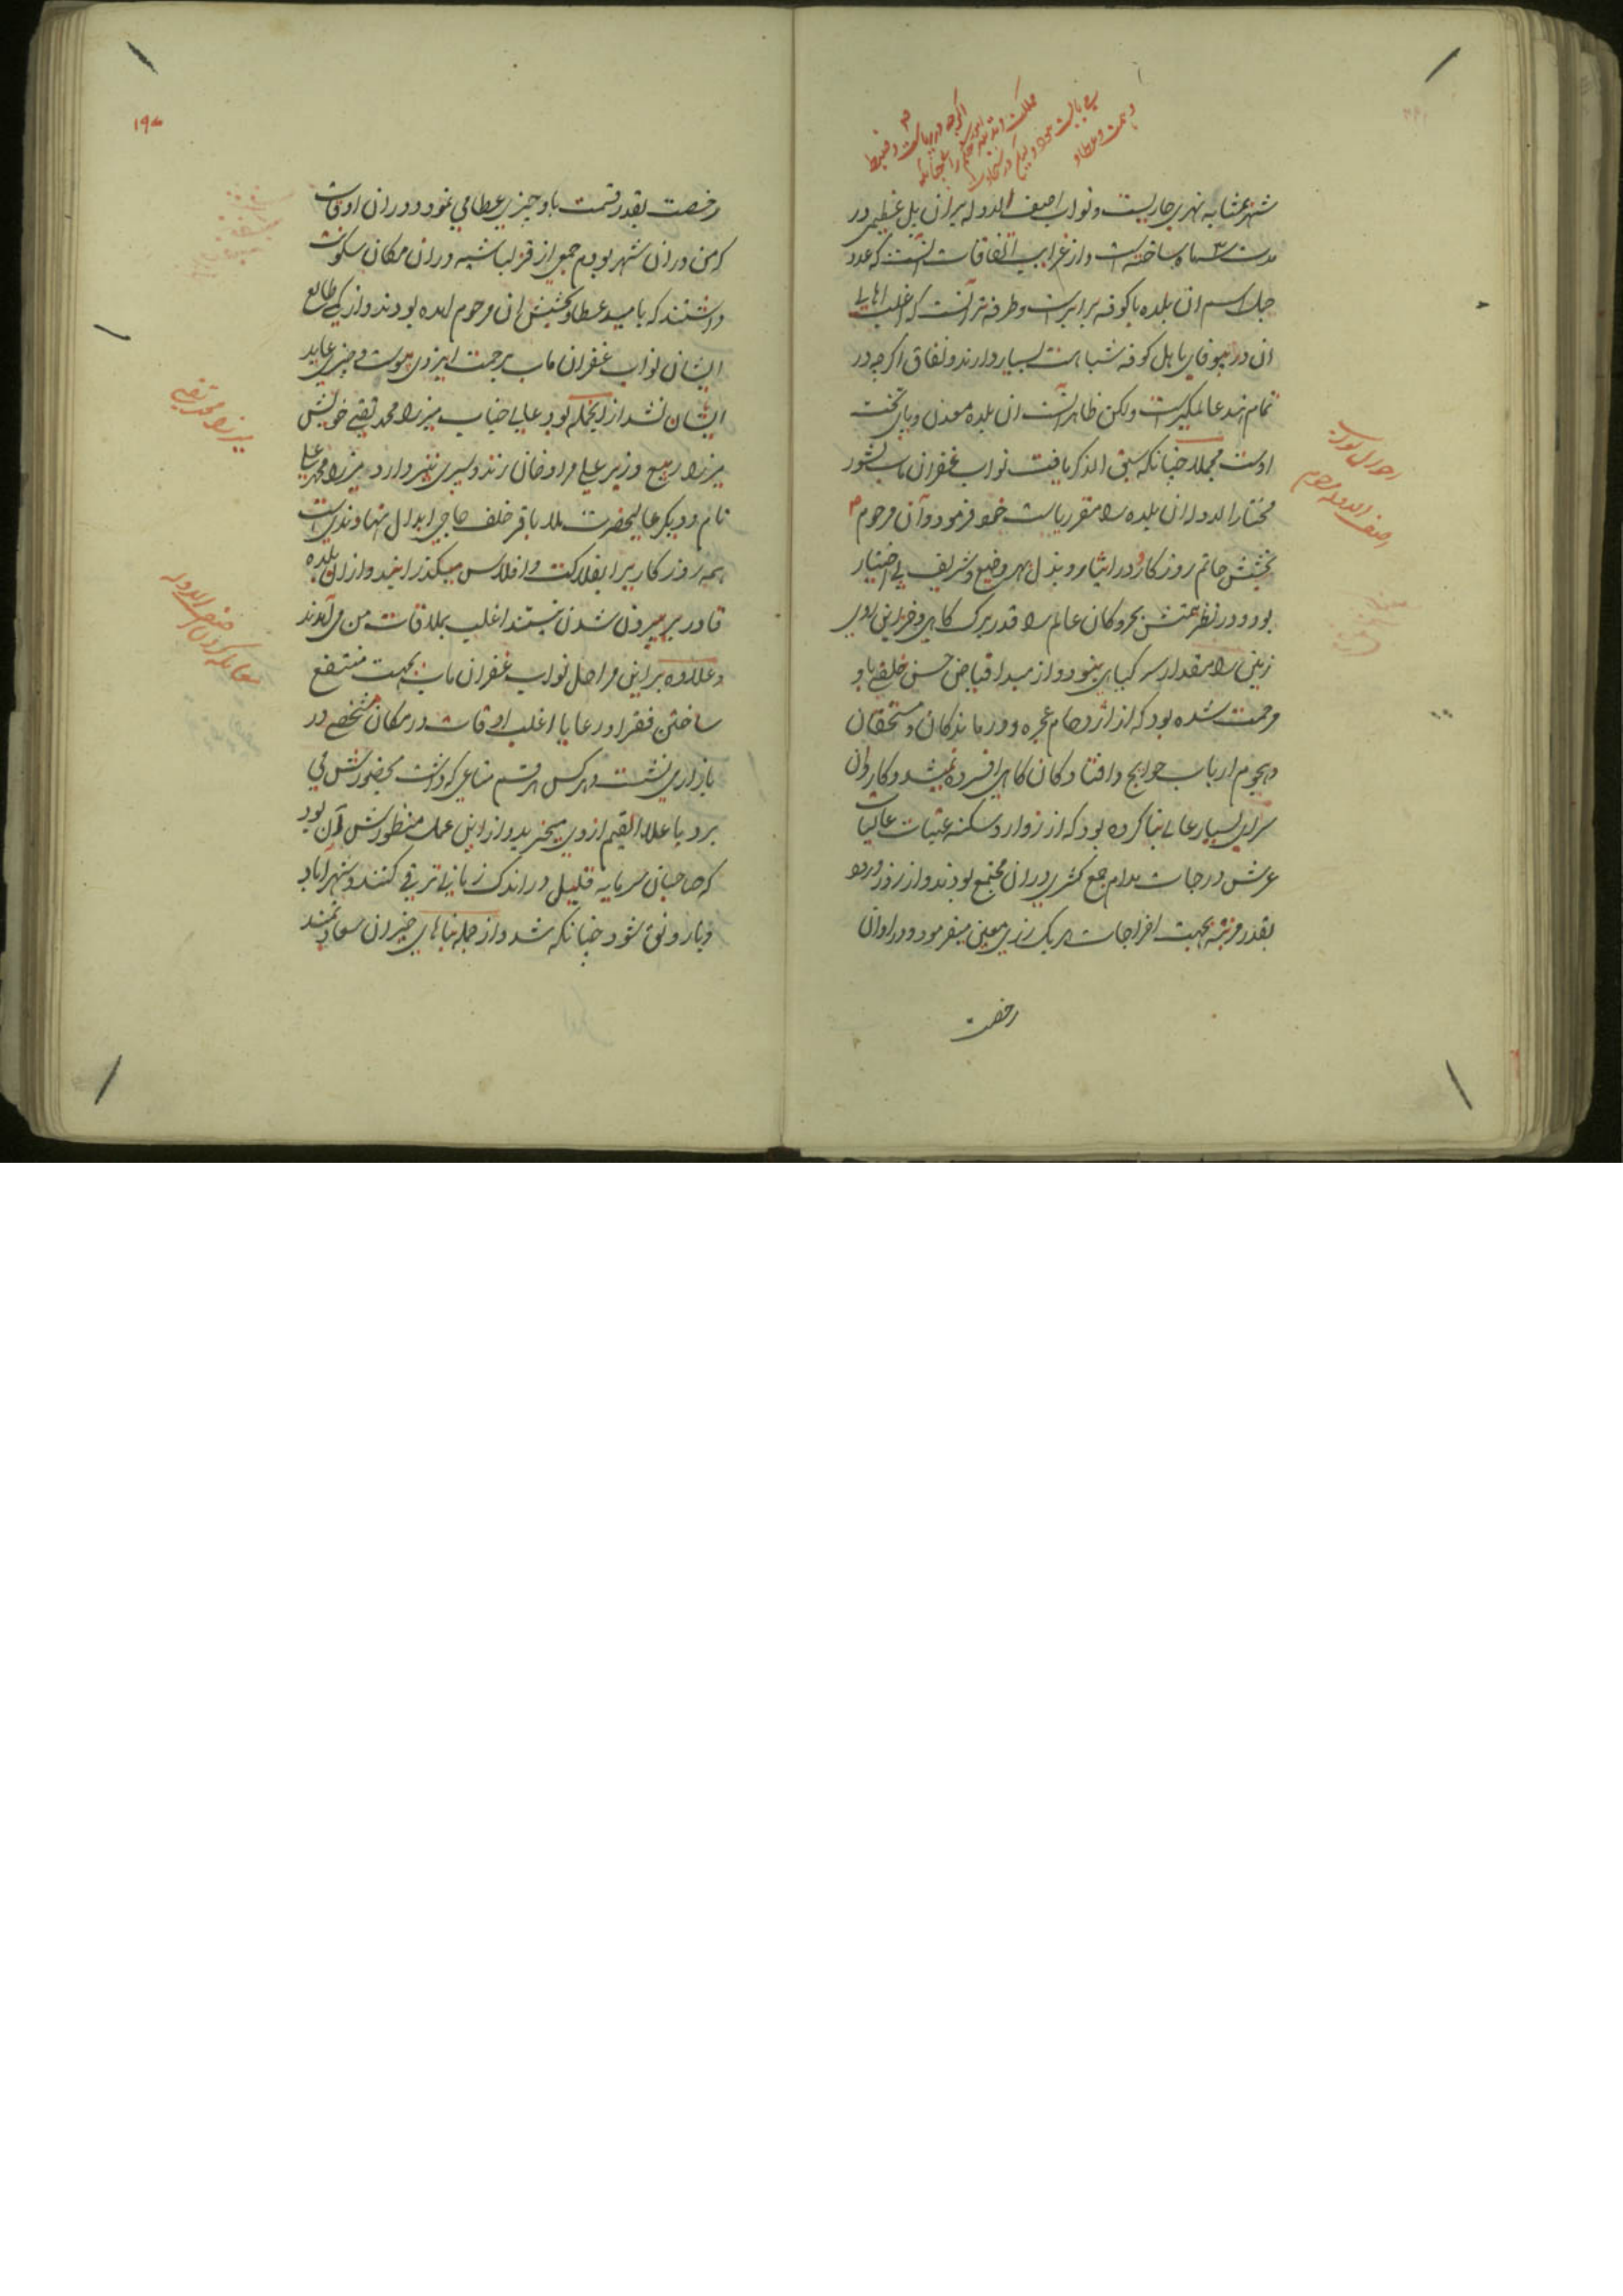 شهر بمثابه نهری جاریست و نواب اصف الدوله بر ان پل عظیمی در
مدت سه ماه ساخته است و از غرایب اتفاقات انست که عدد
جمل اسم ان بلده با کوفه برابرست و طرفه تر آنست که اغلب اهالی
ان در بیوفای باهل کوفه شباهت بسیار دارند و نفاق اکرچه در
تمام هند عالمکیرست ولکن ظاهر آنست ان بلده معدن و پای تخت
اوست مجملا چنانکه سبق الذکر یافت نواب غفران ماب بشور
مختار الدوله ان بلده را مقر ریاست خود فرمود و آن مرحوم
بخشش حاتم روزکار و در ایثار و بذل بهر وضیع و شریف بی اختیار
بود و در نظر همتش بحر و کان عالم را قدر برک کاهی و خزاین روی
زمین را مقدار پر کیاهی نبود و از مبدا فیاض حسن خلقی باو
مرحمت شده بود که از ازدحام عجزه و درماندکان و مستحقان
و هجوم ارباب حوایج و افتادکان کاهی افسرده نمیشد و کاروان
سرای بسیار عالی بنا کرده بود که از زوار و سکنه عتبات عالیات
عرش درجات مدام جمع کثیر در ان مجتمع بودند و از روز ورود
بقدر مرتبه بجهت اخراجات هر یک رزی معین میفرمود و در اوان
رخصت
احوال نواب
اصف الدوله مرحوم
۱۹۸
رخصت بقدر قسمت باو چیزی عطا می نمود و در ان اوقات
که من در ان شهر بودم جمعی از قزلباشیه در ان مکان سکونت
داشتند که بامید عطا و بخشش ان مرحوم امده بودند و از کجی طالع
ایشان نواب غفران ماب برحمت ایزدی پیوست و چیزی عاید
ایشان نشد از انجمله بود عالی جناب میرزا محمد تقی خویش
میرزا ربیع وزیر علی مراد خان زند و پسری نیز دارد میرزا محمد علی
نام و دیکر عالیحضرت ملا باقر خلف حاجی ابدال نهاوندیست
همه روزکار را بفلاکت و افلاس میکذرانید و از ان بلده
قادر بر بیرون شدن نیستند اغلب بملاقات من می آمدند
و علاوه بر این مراحل نواب غفران ماب بجهت منتفع
ساختن فقرا و رعایا اغلب اوقات در مکان مشخصی در
بازار می نشست و هر کس هر قسم متاعی که داشت بحضورش می
برد باعلا القیم از وی میخرید و از این عمل منظورش آن بود
که صاحبان سرمایه قلیل در اندک زمانی ترقی کنند و شهر آباد
و با رونق شود چنانکه شد و از جمله بناهای خیر ان سعادتمند
میرزا محمد تقی